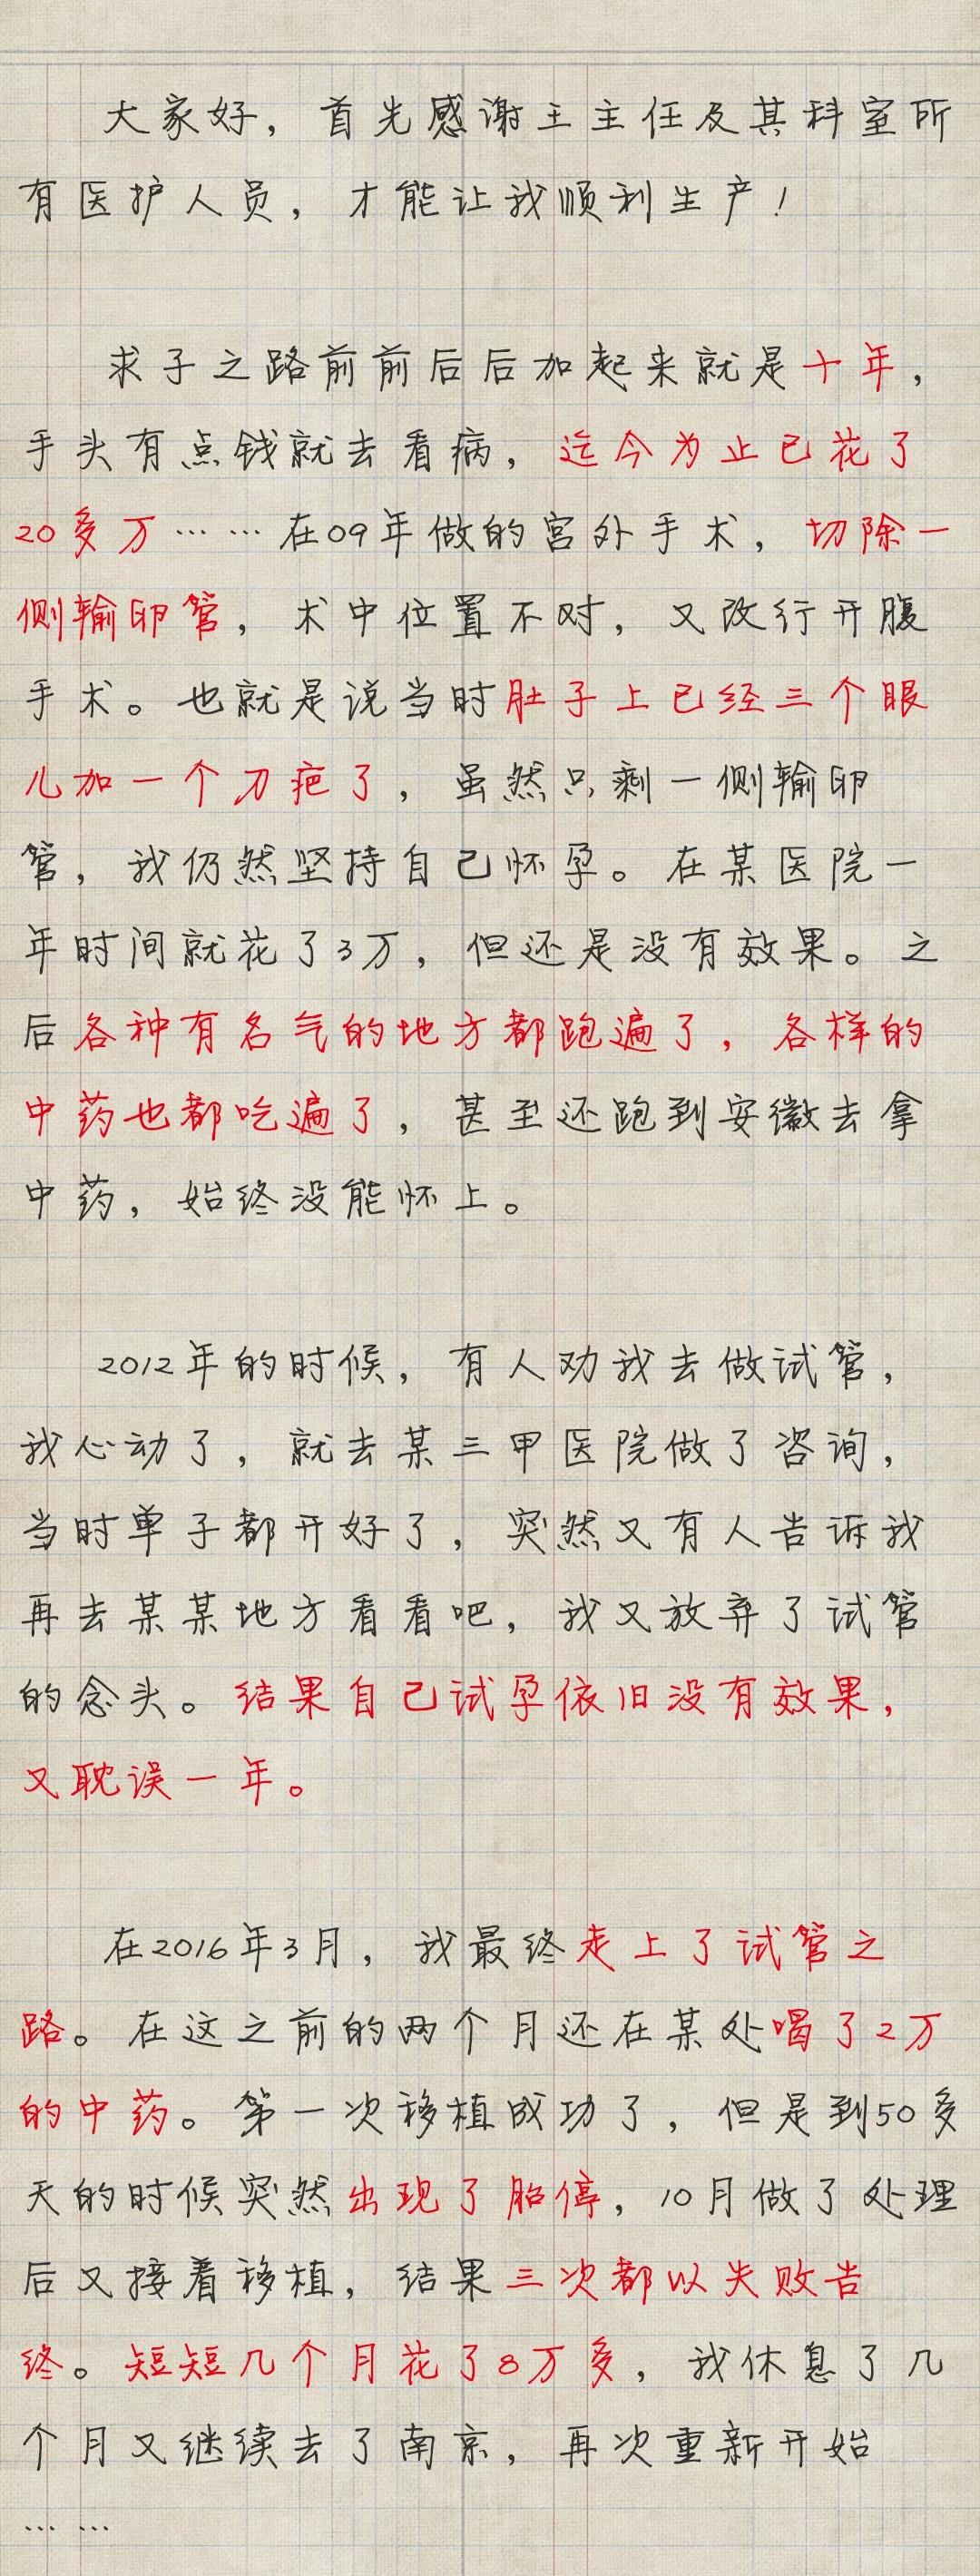 大家好，首先感谢王主任及其科室所
有医护人员，才能让我顺利生产！
求子之路前前后后加起来就是十年，
手头有点钱就去看病，迄今为止已花了
20多万……在09年做的宫外手术，切除一
侧输卵管，术中位置不对，又改行开腹
手术。也就是说当时肚子上已经三个眼
儿加一个刀疤了，虽然只剩一侧输卵
管，我仍然坚持自己怀孕。在某医院一
年时间就花了3万，但还是没有效果。之
后各种有名气的地方都跑遍了，各样的
中药也都吃遍了，甚至还跑到安徽去拿
中药，始终没能怀上。
2012年的时候，有人劝我去做试管，
我心动了，就去某三甲医院做了咨询，
当时单子都开好了，突然又有人告诉我
再去某某地方看看吧，我又放弃了试管
的念头。结果自己试孕依旧没有效果，
又耽误一年。
在2016年3月，我最终走上了试管之
路。在这之前的两个月还在某处喝了2万
的中药。第一次移植成功了，但是到50多
天的时候突然出现了胎停，10月做了处理
后又接着移植，结果三次都以失败告
终。短短几个月花了8万多，我休息了几
个月又继续去了南京，再次重新开始
……